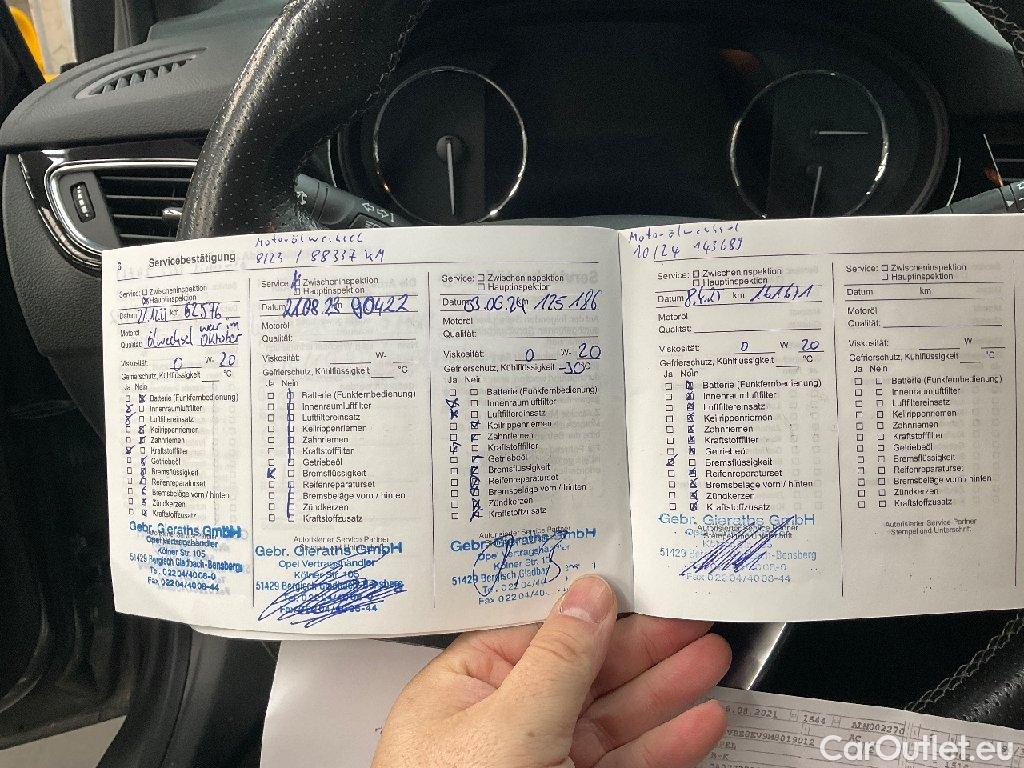 8 Servicebestätigung
Service: Zwischeninspektion
Hauptinspektion
Datum km 62576
Motoröl
Qualität: Ölwechsel war im Oktober
Viskosität: 0 W- 20
Gefrierschutz, Kühlflüssigkeit °C
Ja Nein
Batterie (Funkfernbedienung)
Innenraumluftfilter
Luftfiltereinsatz
Keilrippenriemen
Zahnriemen
Kraftstofffilter
Getriebeöl
Bremsflüssigkeit
Reifenreparaturset
Bremsbeläge vorn / hinten
Zündkerzen
Kraftstoffzusatz
Gebr. Gieraths GmbH
Opel Vertragshändler
Kölner Str. 105
51429 Bergisch Gladbach-Bensberg
Tel. 02204/4008-0
Fax 02204/4008-44
Motorölwechsel
8/23 / 88337 KM
Service: Zwischeninspektion
Hauptinspektion
Datum 21.08.23 km 90422
Motoröl
Qualität:
Viskosität: W-
Gefrierschutz, Kühlflüssigkeit °C
Ja Nein
Batterie (Funkfernbedienung)
Innenraumluftfilter
Luftfiltereinsatz
Keilrippenriemen
Zahnriemen
Kraftstofffilter
Getriebeöl
Bremsflüssigkeit
Reifenreparaturset
Bremsbeläge vorn / hinten
Zündkerzen
Kraftstoffzusatz
Autorisierter Service Partner
Gebr. Gieraths GmbH
Opel Vertragshändler
Kölner Str. 105
51429 Bergisch Gladbach-Bensberg
Tel. 02204/4008-0
Fax 02204/4008-44
Service: Zwischeninspektion
Hauptinspektion
Datum 03.06.24 km 125186
Motoröl
Qualität:
Viskosität: 0 W- 20
Gefrierschutz, Kühlflüssigkeit -30°C
Ja Nein
Batterie (Funkfernbedienung)
Innenraumluftfilter
Luftfiltereinsatz
Keilrippenriemen
Zahnriemen
Kraftstofffilter
Getriebeöl
Bremsflüssigkeit
Reifenreparaturset
Bremsbeläge vorn / hinten
Zündkerzen
Kraftstoffzusatz
Gebr. Gieraths GmbH
Opel Vertragshändler
Kölner Str.
51429 Bergisch Gladbach
Tel. 02204/40
Fax 02204/40
Motorölwechsel
10/24 143689
Service: Zwischeninspektion
Hauptinspektion
Datum km
Motoröl
Qualität:
Viskosität: 0 W- 20
Gefrierschutz, Kühlflüssigkeit °C
Ja Nein
Batterie (Funkfernbedienung)
Innenraumluftfilter
Luftfiltereinsatz
Keilrippenriemen
Zahnriemen
Kraftstofffilter
Getriebeöl
Bremsflüssigkeit
Reifenreparaturset
Bremsbeläge vorn / hinten
Zündkerzen
Kraftstoffzusatz
Gebr. Gieraths GmbH
Autorisierter Service Partner
51429 Bergisch Gladbach-Bensberg
Fax 02204/4008-44
Service: Zwischeninspektion
Hauptinspektion
Datum km
Motoröl
Qualität:
Viskosität: W-
Gefrierschutz, Kühlflüssigkeit °C
Ja Nein
Batterie (Funkfernbedienung)
Innenraumluftfilter
Luftfiltereinsatz
Keilrippenriemen
Zahnriemen
Kraftstofffilter
Getriebeöl
Bremsflüssigkeit
Reifenreparaturset
Bremsbeläge vorn / hinten
Zündkerzen
Kraftstoffzusatz
Autorisierter Service Partner
Stempel und Unterschrift
.08.2021
CarOutlet.eu